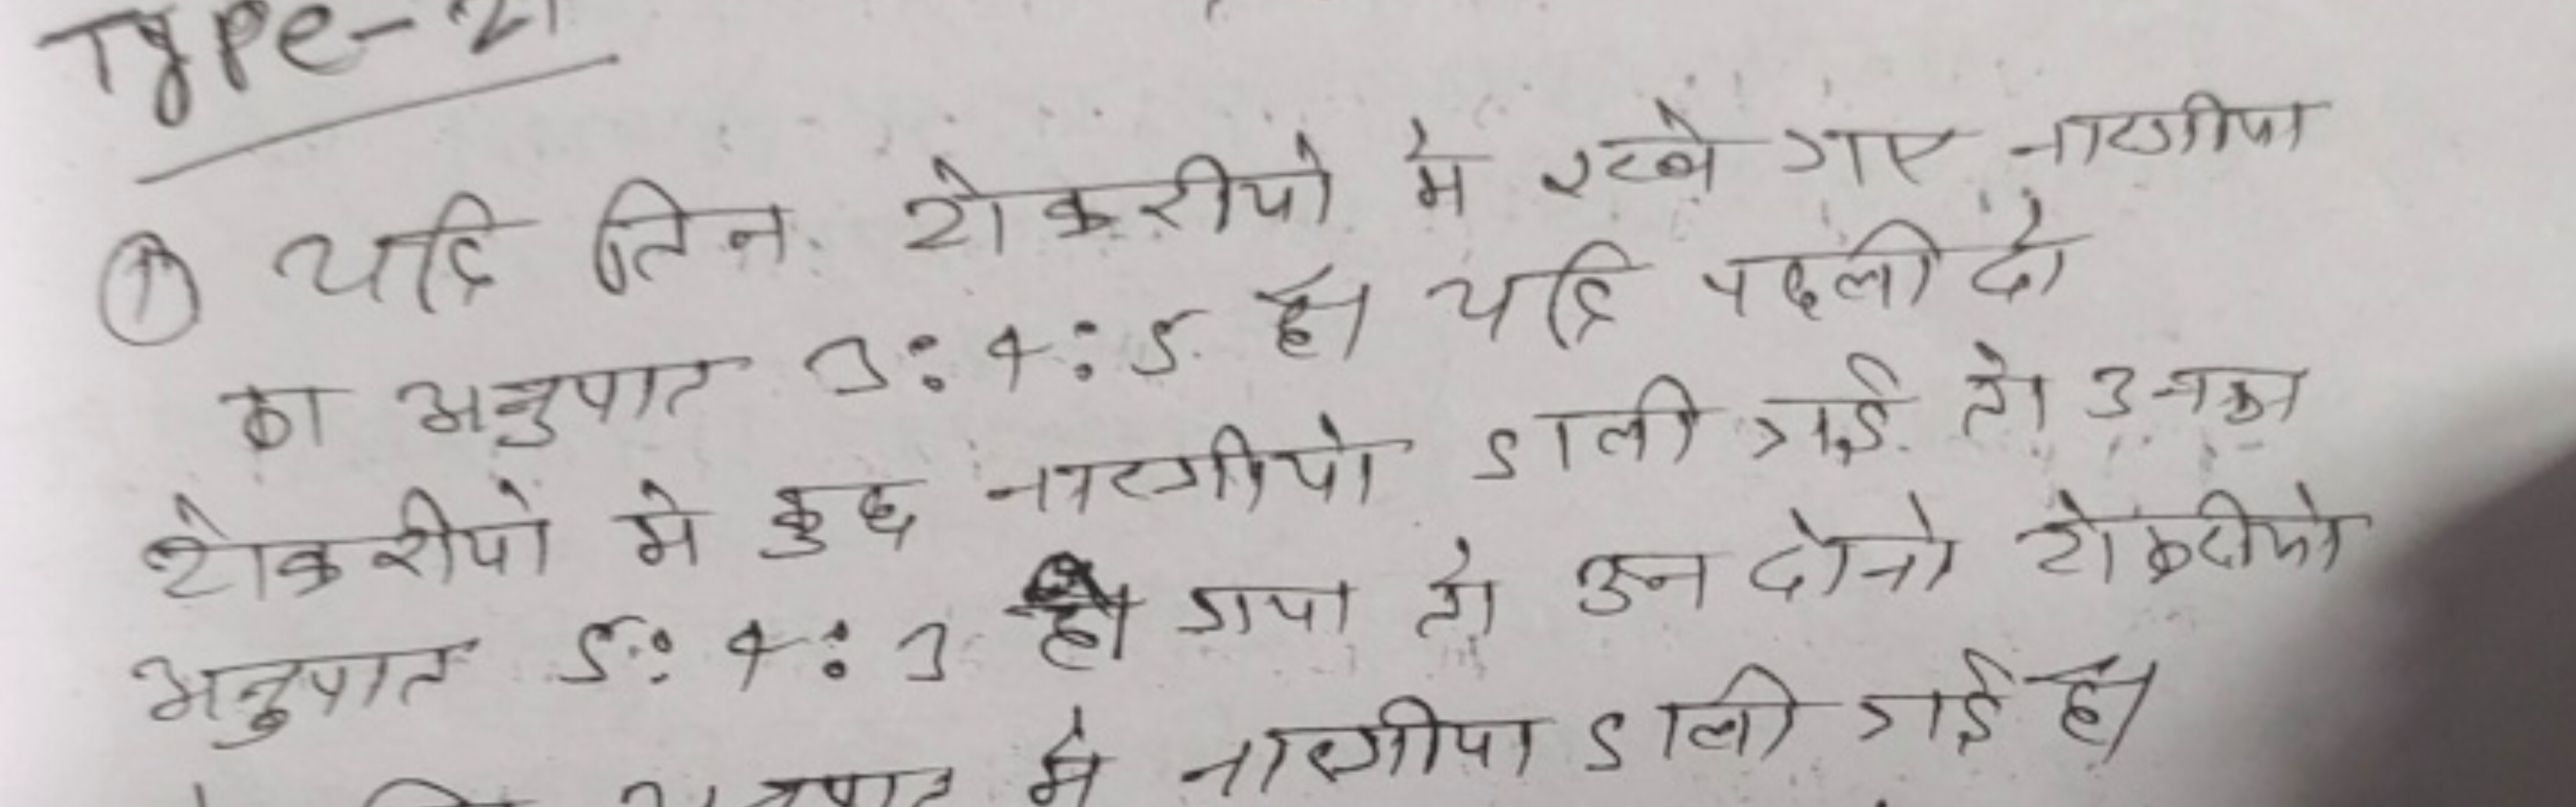 Type-21
① यदि तिन टोकरीयो मे रखे गए नारगीया
का अनुपात 3:4:5 है। यदि पहली दो
टोकरीयो मे कुछ नारगीयो डाली गई तो उनका
अनुपात 5:4:3 हो गया तो उन दोनो टोकरीयो
मे नारगीया डाली गई है।